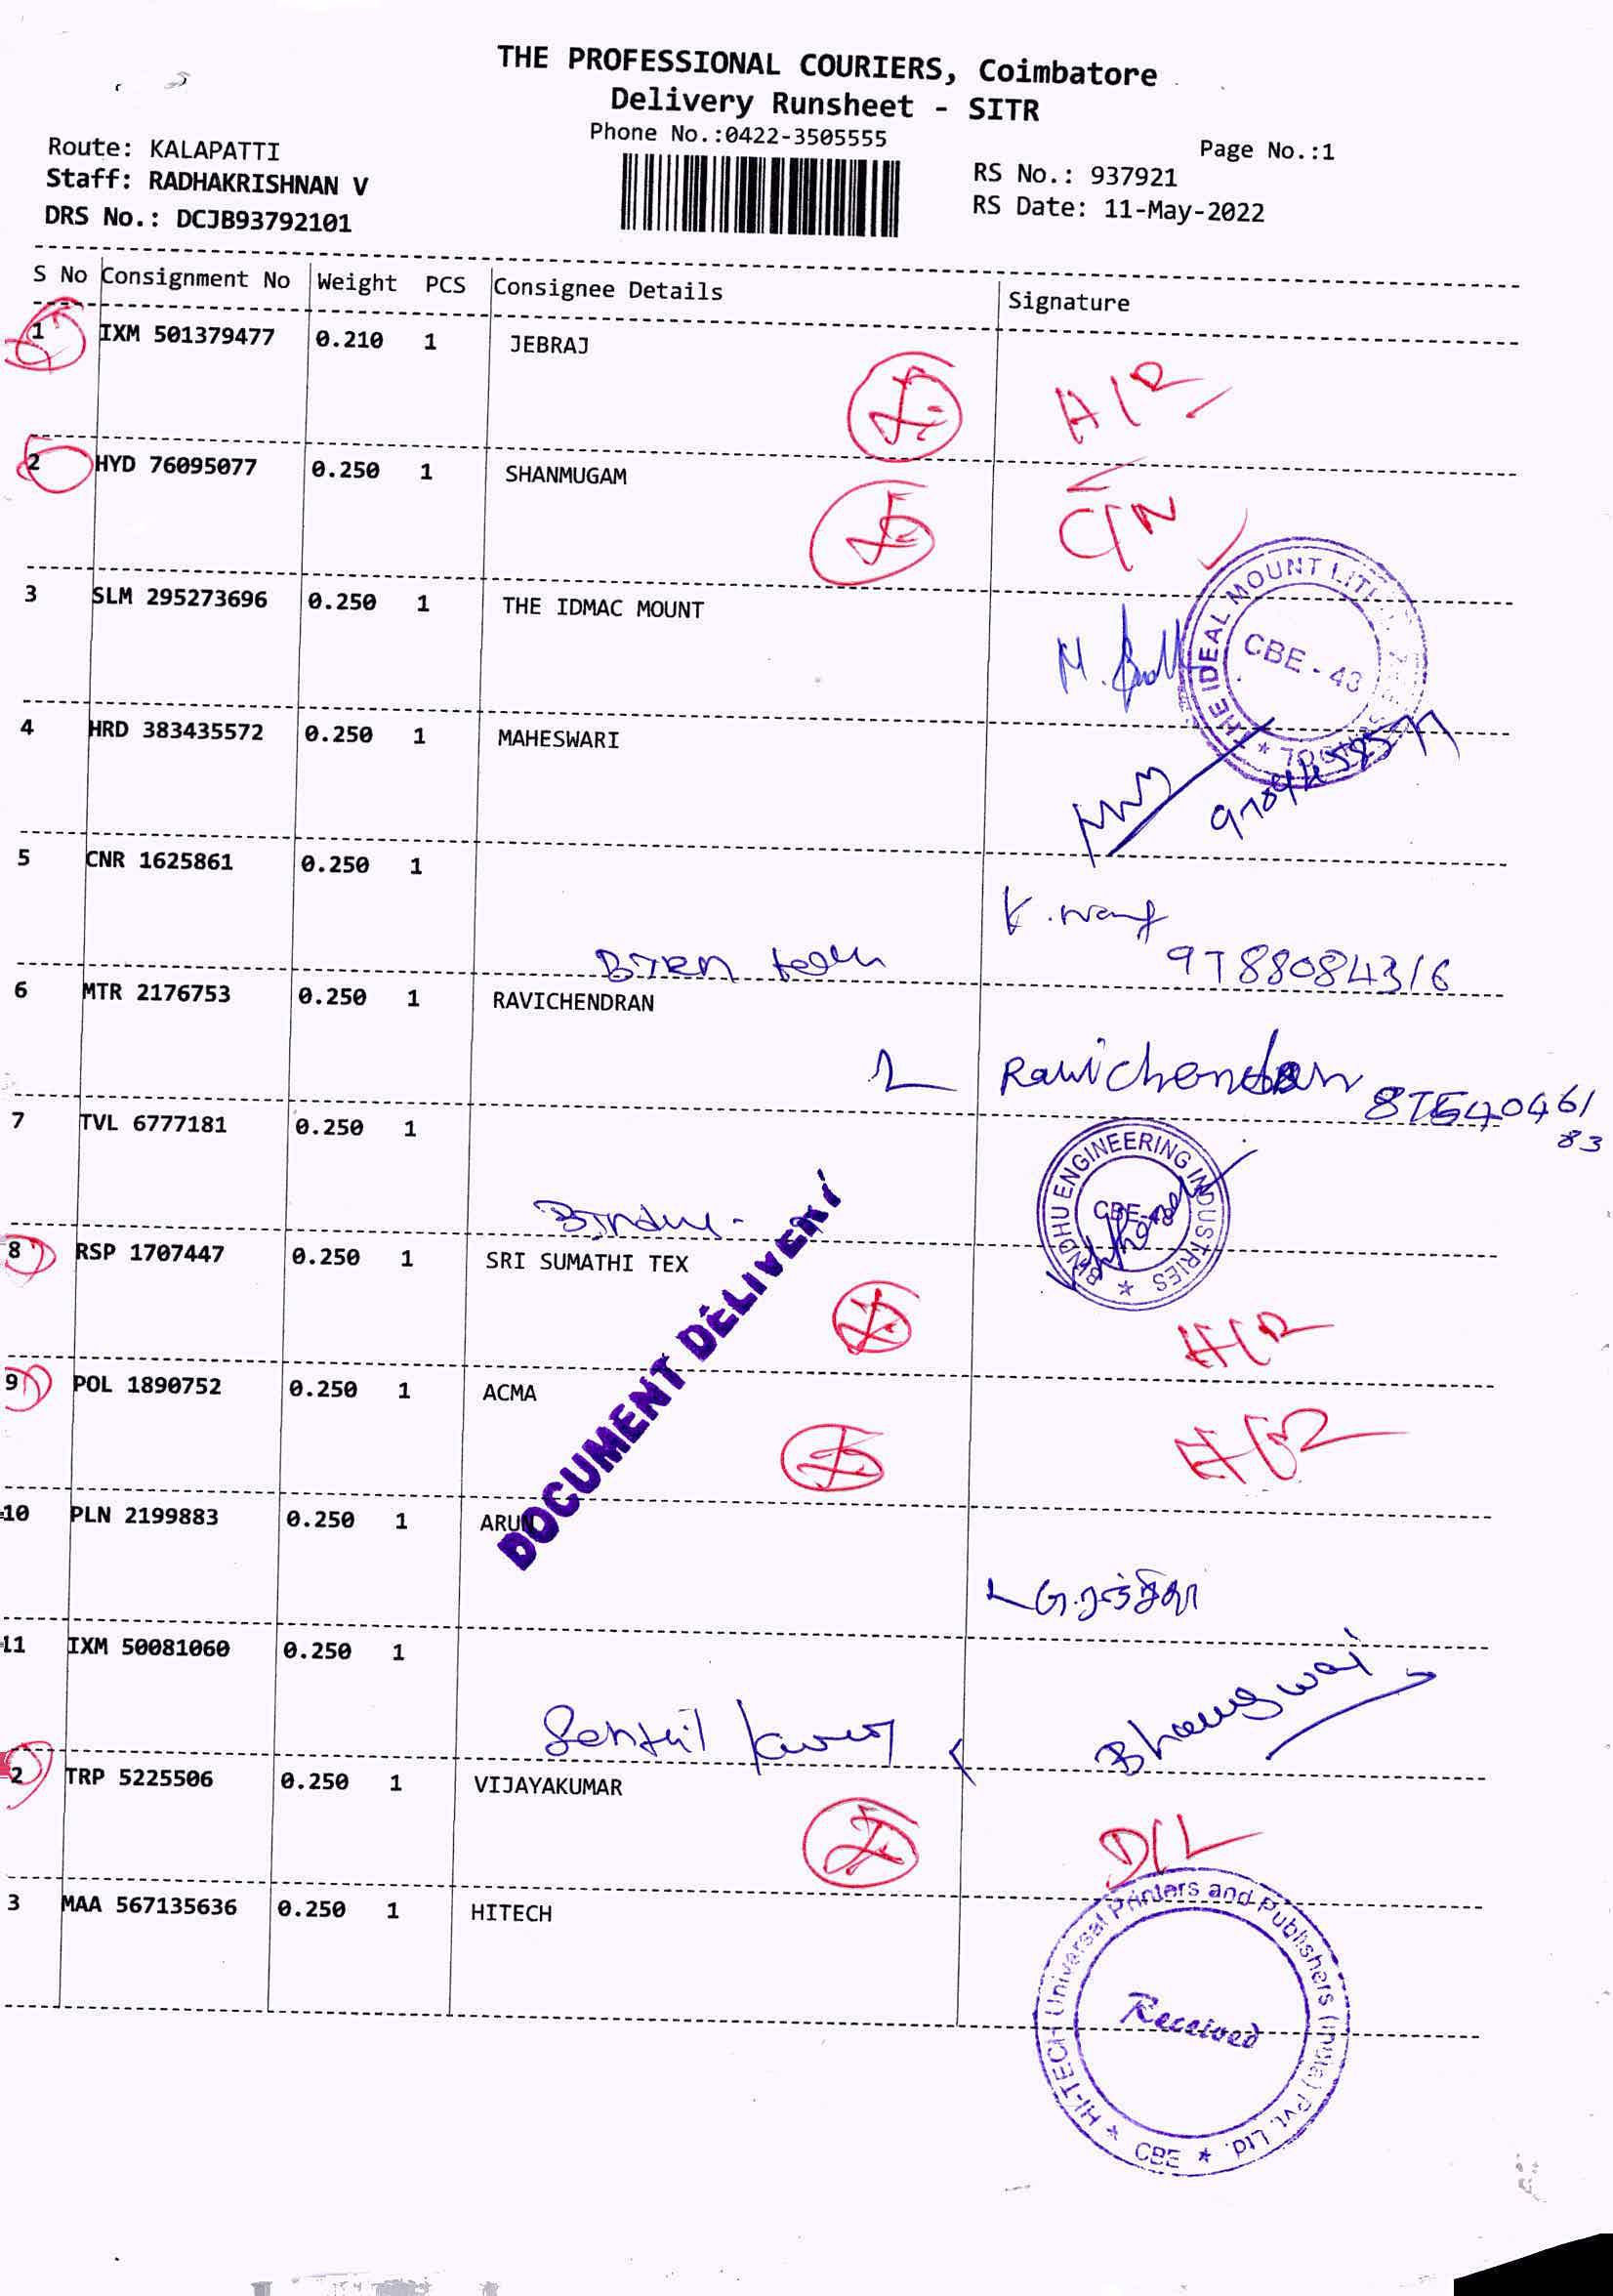 THE PROFESSIONAL COURIERS, Coimbatore
Delivery Runsheet - SITR
Phone No.:0422-3505555
Page No.:1
Route: KALAPATTI
Staff: RADHAKRISHNAN V
DRS No.: DCJB93792101
RS No.: 937921
RS Date: 11-May-2022
S No Consignment No Weight PCS Consignee Details Signature
1 IXM 501379477 0.210 1 JEBRAJ
2 HYD 76095077 0.250 1 SHANMUGAM
3 SLM 295273696 0.250 1 THE IDMAC MOUNT
THE IDEAL MOUNT
CBE - 43
4 HRD 383435572 0.250 1 MAHESWARI
5 CNR 1625861 0.250 1
9788084316
6 MTR 2176753 0.250 1 RAVICHENDRAN
Ravichendran
7 TVL 6777181 0.250 1
BINDHU ENGINEERING INDUSTRIES
8 RSP 1707447 0.250 1 SRI SUMATHI TEX
9 POL 1890752 0.250 1 ACMA
DOCUMENT DELIVERY
10 PLN 2199883 0.250 1 ARUN
11 IXM 50081060 0.250 1
2 TRP 5225506 0.250 1 VIJAYAKUMAR
D/L
3 MAA 567135636 0.250 1 HITECH
HI-TECH Universal Printers and Publishers (India) Pvt. Ltd.
CBE
Received